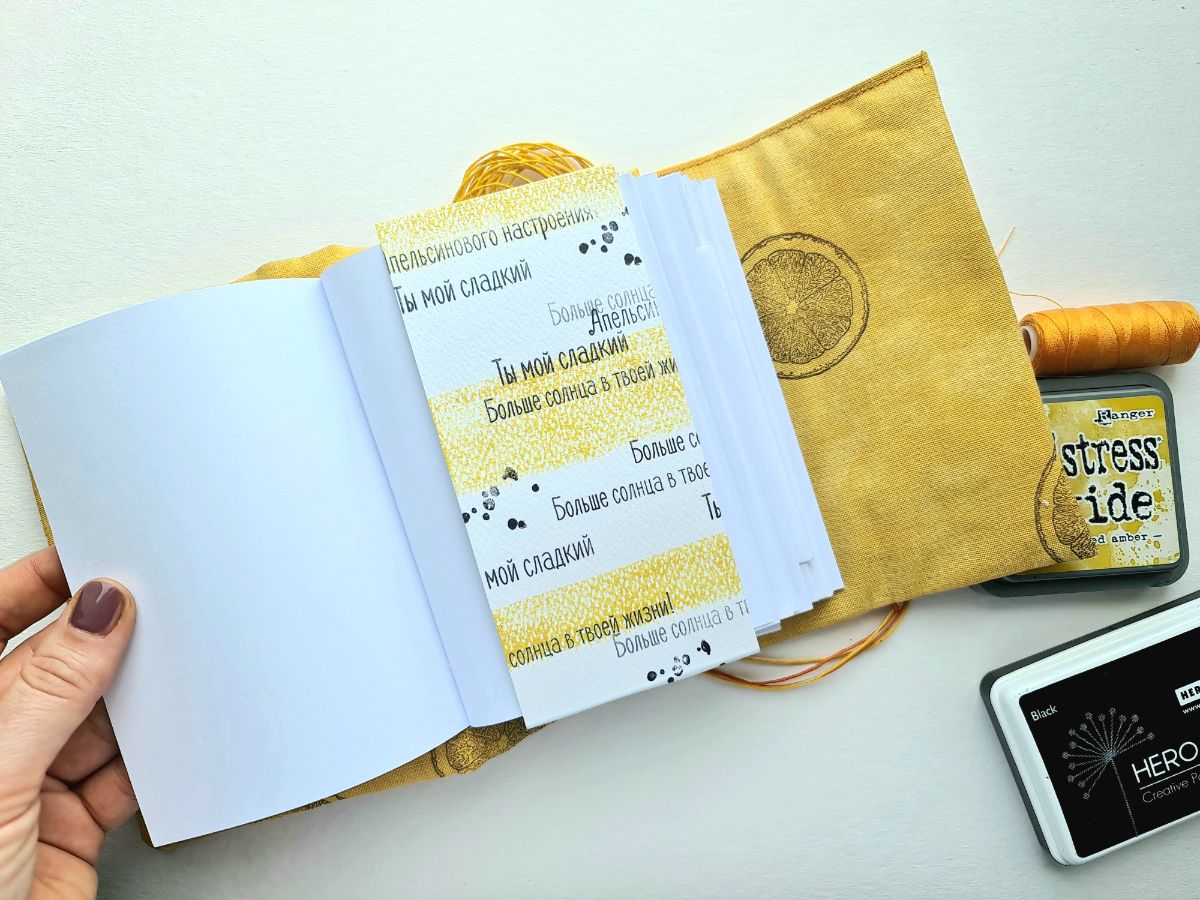 пельсинового настроения
Ты мой сладкий
Больше солнца
Апельсин
Ты мой сладкий
Больше солнца в твоей жи
Больше со
Больше солнца в твое
Ты
мой сладкий
солнца в твоей жизни!
Больше солнца в т
Ranger
stress
ide
ed amber
Black
HERO
Creative P